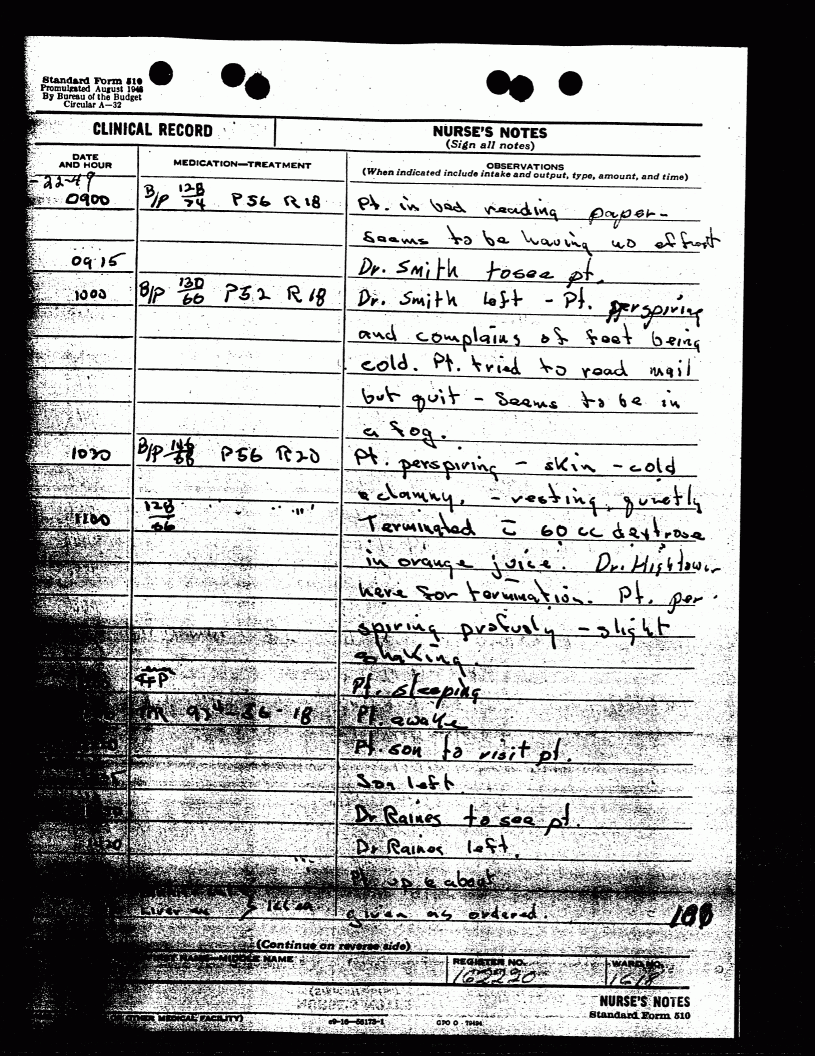 Standard Form 510
Promulgated August 1948
By Bureau of the Budget
Circular A—32
CLINICAL RECORD
NURSE'S NOTES
(Sign all notes)
DATE
AND HOUR
MEDICATION—TREATMENT
OBSERVATIONS
(When indicated include intake and output, type, amount, and time)
-22-49
0900 B/P 128/74 P56 R18 Pt. in bed reading paper-
seems to be having no effect
0915 Dr. Smith to see pt.
1000 B/P 130/60 P52 R18 Dr. Smith left - Pt. perspiring
and complains of feet being
cold. Pt. tried to read mail
but quit - Seems to be in
a fog.
B/P P56 R20 Pt. perspiring - skin - cold
& clammy. - resting quietly
1100 Terminated c̄ 60 cc dextrose
in orange juice. Dr. Hightower
here for termination. Pt. per-
spiring profusly - slight
shaking.
Pt. sleeping
18 Pt. awake
Pt. son to visit pt.
Son left
Dr Raines to see pt.
Dr Raines left.
Pt. up & about
given as ordered.
(Continue on reverse side)
MIDDLE NAME
REGISTER NO.
WARD NO.
162290
1618
NURSE'S NOTES
Standard Form 510
OTHER MEDICAL FACILITY)